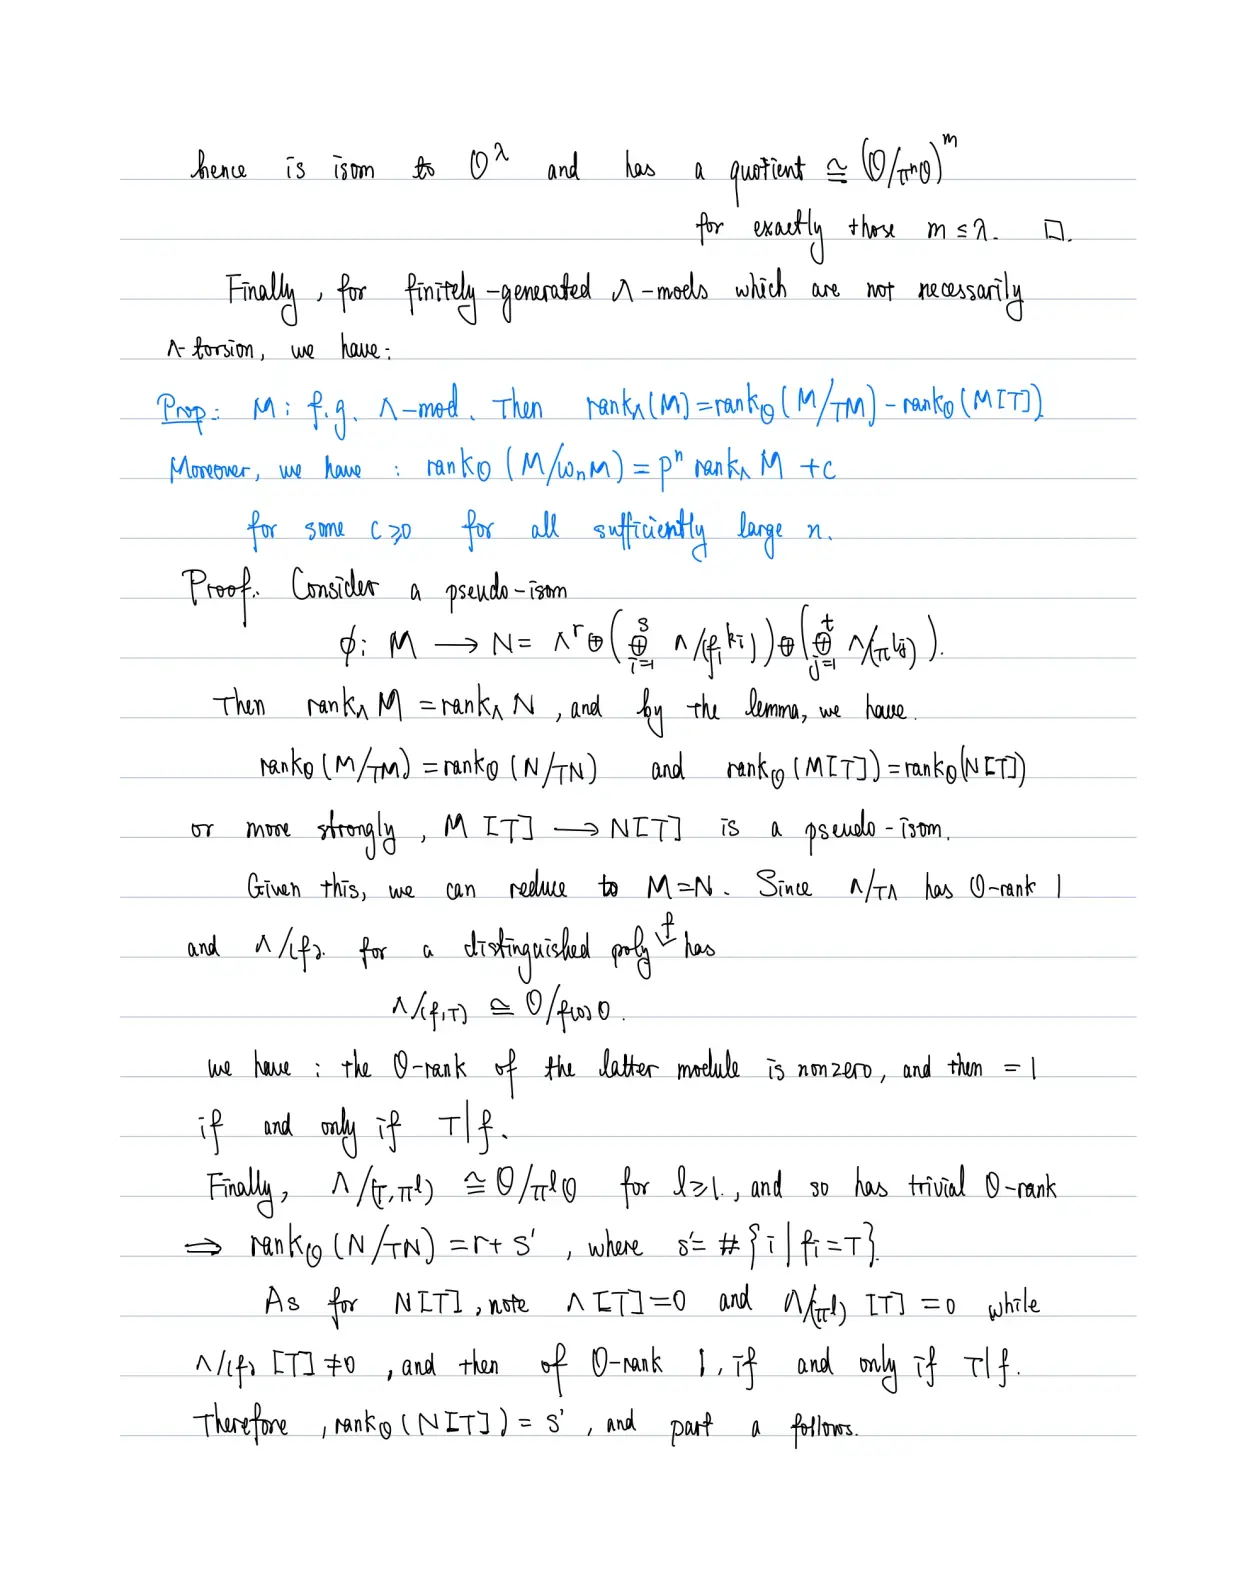 hence is isom to 𝒪^λ and has a quotient ≅ (𝒪/πⁿ𝒪)^m
for exactly those m ≤ λ. □.
Finally, for finitely-generated Λ-mods which are not necessarily
Λ-torsion, we have:
Prop: M: f.g. Λ-mod. Then rank_Λ(M) = rank_𝒪(M/TM) - rank_𝒪(M[T])
Moreover, we have : rank_𝒪(M/ω_n M) = pⁿ rank_Λ M + c
for some c ≥ 0 for all sufficiently large n.
Proof. Consider a pseudo-isom
ϕ: M ⟶ N = Λ^r ⊕ (⊕_{i=1}^{s} Λ/(f_i^{k_i})) ⊕ (⊕_{j=1}^{t} Λ/(π^{l_j})).
Then rank_Λ M = rank_Λ N, and by the lemma, we have.
rank_𝒪(M/TM) = rank_𝒪(N/TN) and rank_𝒪(M[T]) = rank_𝒪(N[T])
or more strongly, M[T] ⟶ N[T] is a pseudo-isom.
Given this, we can reduce to M=N. Since Λ/TΛ has 𝒪-rank 1
and Λ/(f). for a distinguished poly f has
Λ/(f,T) ≅ 𝒪/f(0)𝒪.
we have : the 𝒪-rank of the latter module is nonzero, and then = 1
if and only if T|f.
Finally, Λ/(T,π^l) ≅ 𝒪/π^l𝒪 for l≥1., and so has trivial 𝒪-rank
⇒ rank_𝒪(N/TN) = r + s', where s' = #{i | f_i = T}.
As for N[T], note Λ[T]=0 and Λ/(π^l)[T] = 0 while
Λ/(f)[T] ≠ 0, and then of 𝒪-rank 1, if and only if T|f.
Therefore, rank_𝒪(N[T]) = s', and part a follows.